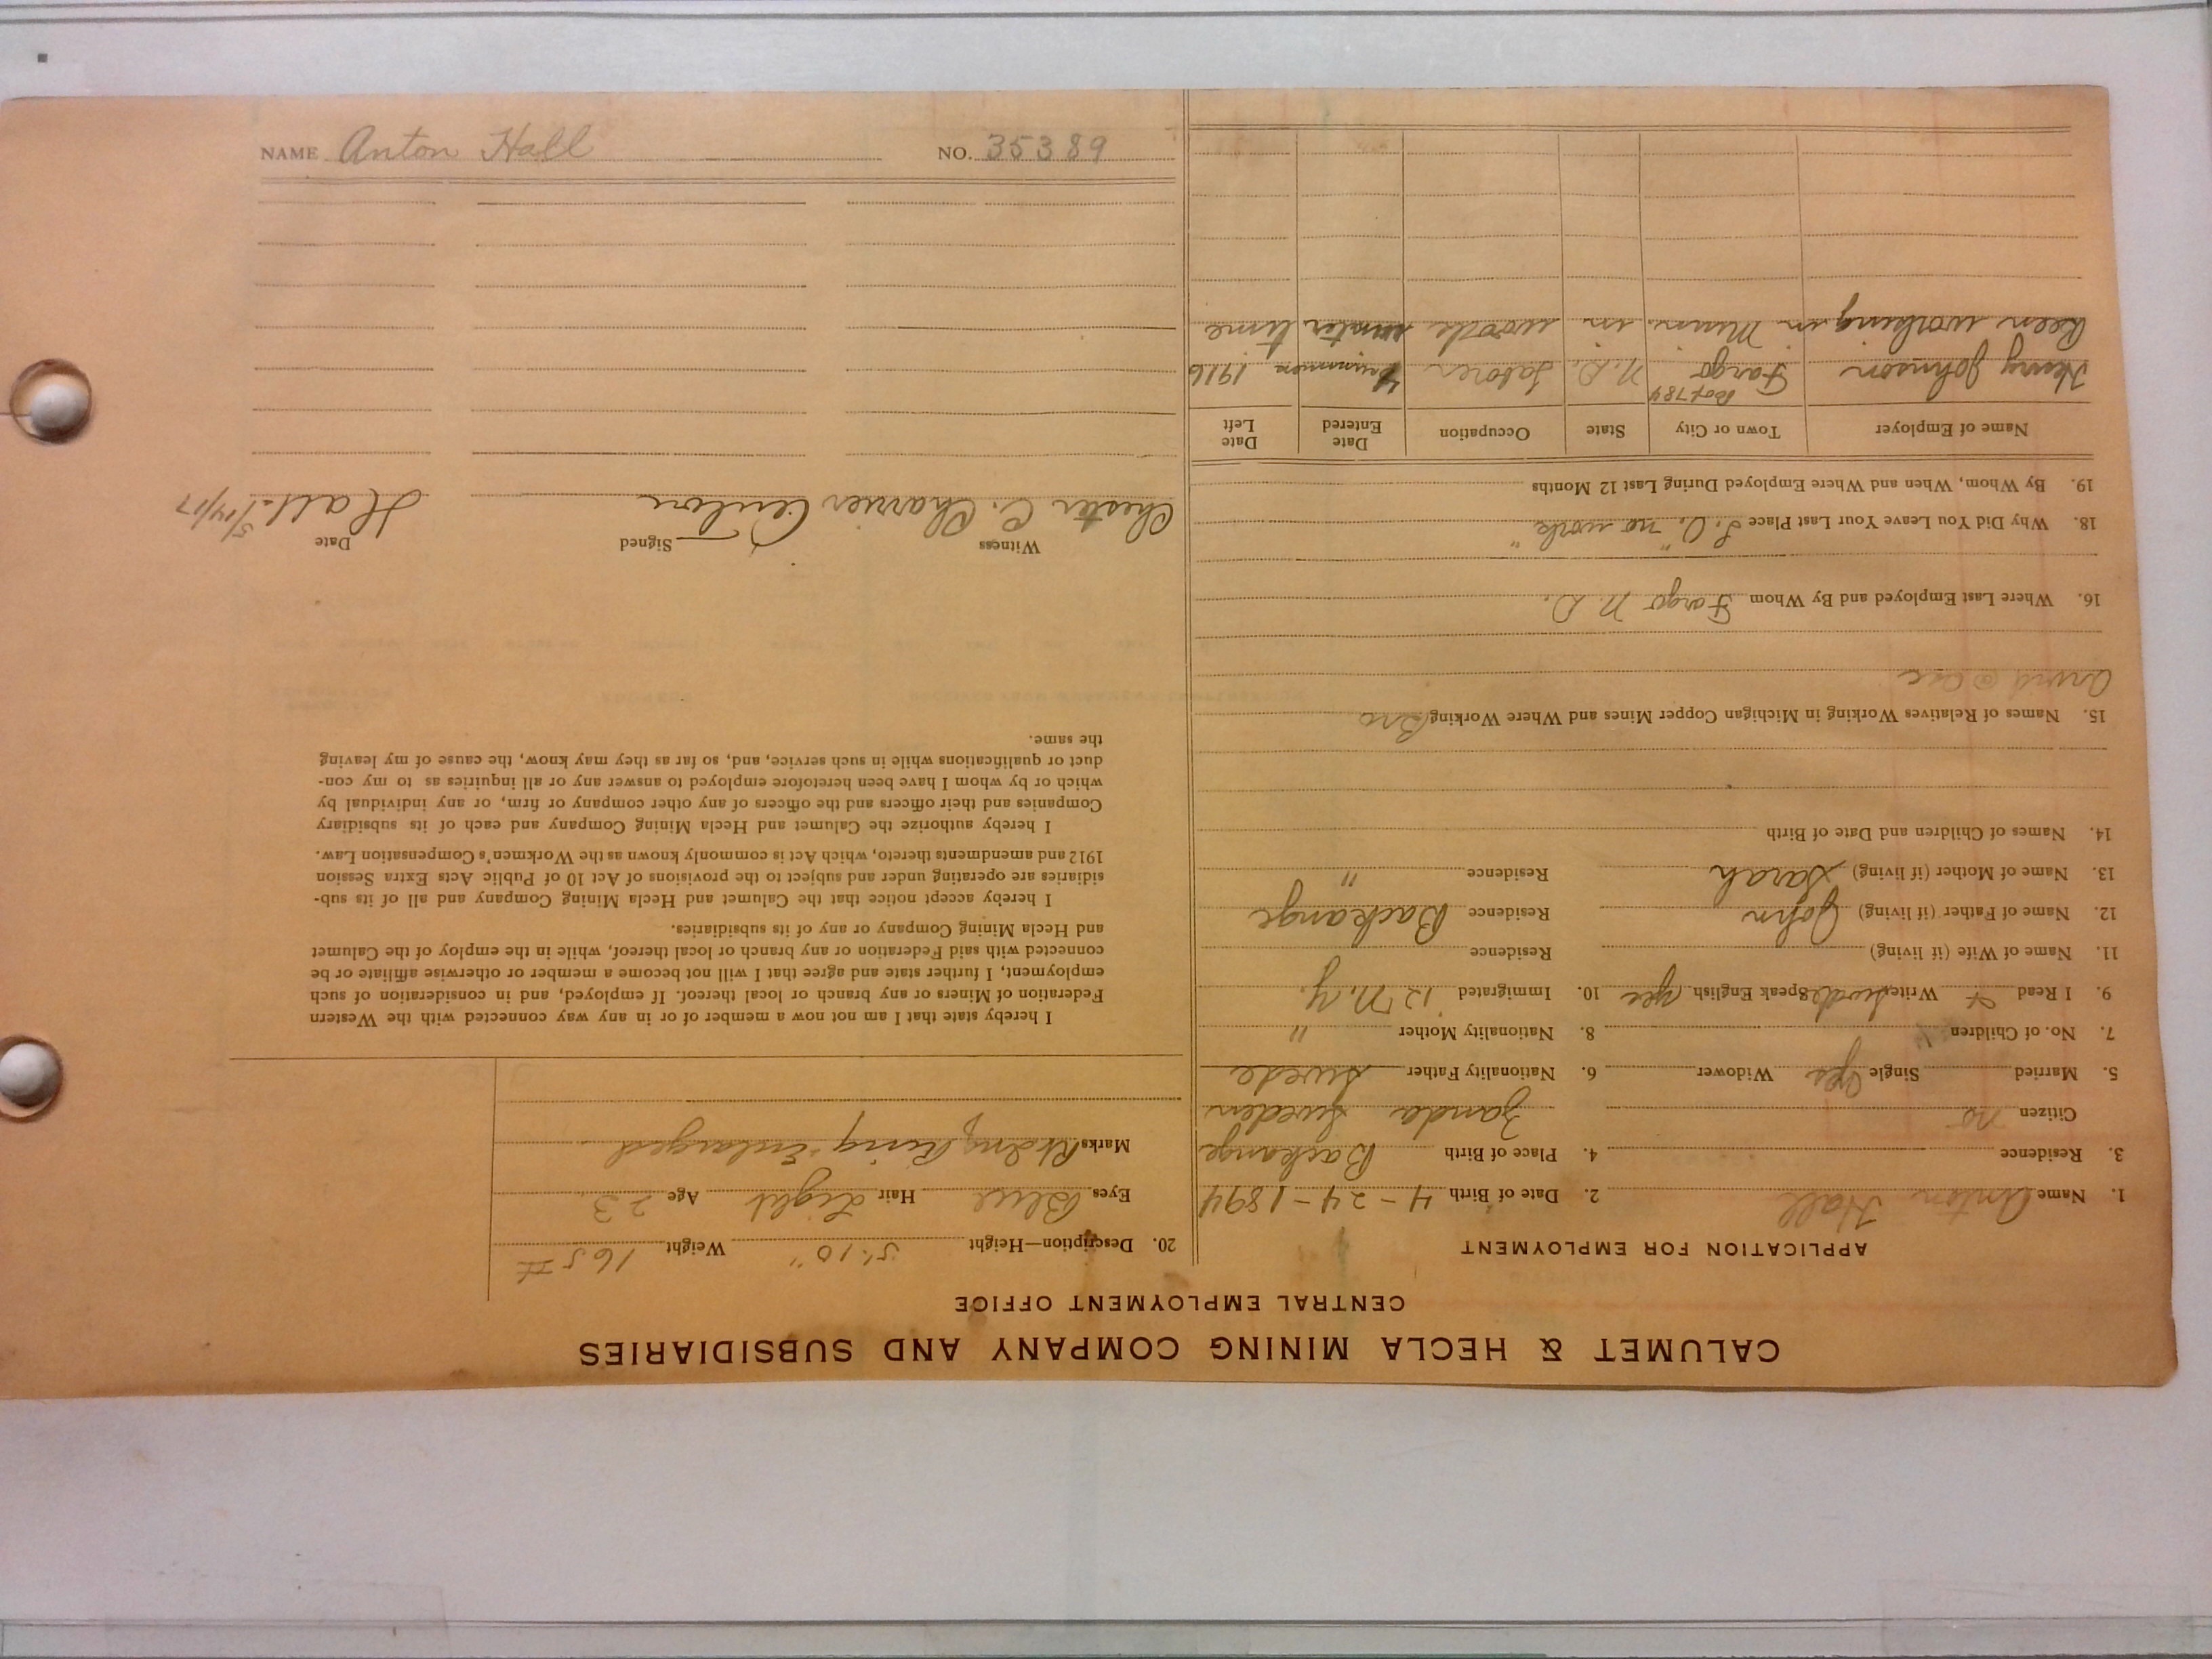 CALUMET & HECLA MINING COMPANY AND SUBSIDIARIES
CENTRAL EMPLOYMENT OFFICE
APPLICATION FOR EMPLOYMENT
1. Name Anton Hall 2. Date of Birth 4-24-1894
3. Residence 4. Place of Birth Backange
Citizen no Zanda Sweden
5. Married Single yes Widower 6. Nationality Father Swede
7. No. of Children 8. Nationality Mother "
9. I Read Write Swede Speak English yes 10. Immigrated '12 N.Y.
11. Name of Wife (if living) Residence
12. Name of Father (if living) John Residence Backange
13. Name of Mother (if living) Sarah Residence "
14. Names of Children and Date of Birth
15. Names of Relatives Working in Michigan Copper Mines and Where Working Bro
Arvid @
16. Where Last Employed and By Whom Fargo N. D.
18. Why Did You Leave Your Last Place "no work"
19. By Whom, When and Where Employed During Last 12 Months
Name of Employer Town or City State Occupation Date Entered Date Left
Box 784
Henry Johnson Fargo N.D. Laborer Summer 1916
Been working in Minn. in woods winter time
20. Description—Height 5'.10" Weight 165 #
Eyes Blue Hair Light Age 23
Marks Ring Enlarged
I hereby state that I am not now a member of or in any way connected with the Western
Federation of Miners or any branch or local thereof. If employed, and in consideration of such
employment, I further state and agree that I will not become a member or otherwise affiliate or be
connected with said Federation or any branch or local thereof, while in the employ of the Calumet
and Hecla Mining Company or any of its subsidiaries.
I hereby accept notice that the Calumet and Hecla Mining Company and all of its sub-
sidiaries are operating under and subject to the provisions of Act 10 of Public Acts Extra Session
1912 and amendments thereto, which Act is commonly known as the Workmen's Compensation Law.
I hereby authorize the Calumet and Hecla Mining Company and each of its subsidiary
Companies and their officers and the officers of any other company or firm, or any individual by
which or by whom I have been heretofore employed to answer any or all inquiries as to my con-
duct or qualifications while in such service, and, so far as they may know, the cause of my leaving
the same.
Witness Signed Date
Chester C. Charrier Anton Hall 5/14/17
NAME Anton Hall NO. 35389